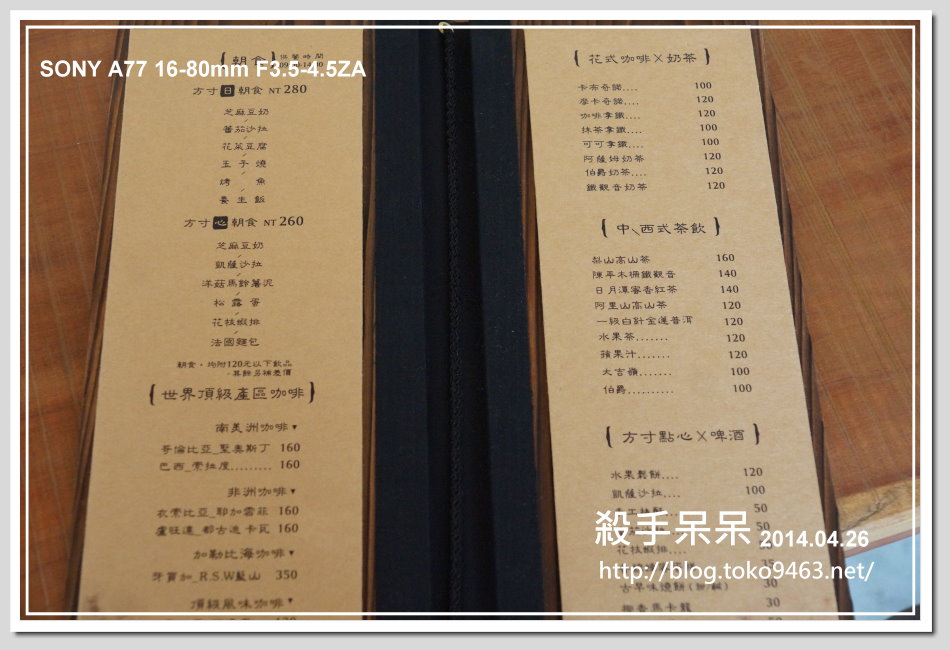 SONY A77 16-80mm F3.5-4.5ZA
朝食 供餐時間
方寸日朝食 NT 280
芝麻豆奶
蕃茄沙拉
花菜豆腐
玉子燒
烤魚
養生飯
方寸心朝食 NT 260
芝麻豆奶
凱薩沙拉
洋菇馬鈴薯泥
松露蛋
花枝蝦排
法國麵包
朝食，均附120元以下飲品
其餘另補差價
世界頂級產區咖啡
南美洲咖啡▼
哥倫比亞_聖奧斯丁 160
巴西_索拉度......... 160
非洲咖啡▼
衣索比亞_耶加雪菲 160
盧旺達_都古迪卡瓦 160
加勒比海咖啡▼
牙買加_R.S.W藍山 350
頂級風味咖啡▼
花式咖啡X奶茶
卡布奇諾.... 100
摩卡奇諾.... 120
咖啡拿鐵.... 120
抹茶拿鐵.... 100
可可拿鐵.... 100
阿薩姆奶茶 120
伯爵奶茶.... 120
鐵觀音奶茶 120
中、西式茶飲
梨山高山茶 160
陳年木柵鐵觀音 140
日月潭蜜香紅茶 140
阿里山高山茶 120
一級白針金蓮普洱 120
水果茶....... 120
蘋果汁....... 120
大吉嶺....... 100
伯爵.......... 100
方寸點心X啤酒
水果鬆餅.... 120
凱薩沙拉.... 100
50
50
花枝蝦排....
古早味燒餅 30
30
殺手呆呆 2014.04.26
http://blog.toko9463.net/